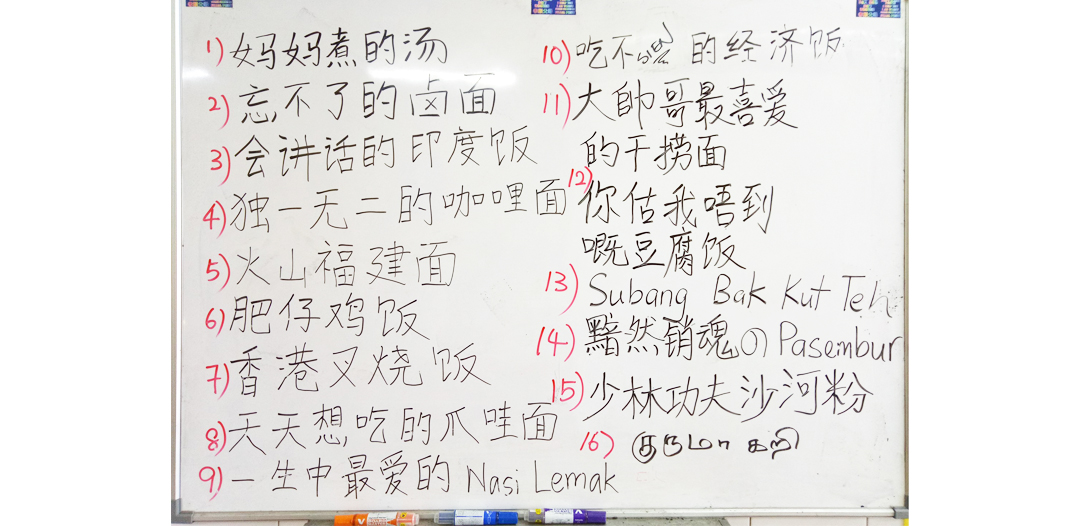 1) 妈妈煮的汤
2) 忘不了的卤面
3) 会讲话的印度饭
4) 独一无二的咖哩面
5) 火山福建面
6) 肥仔鸡饭
7) 香港叉烧饭
8) 天天想吃的爪哇面
9) 一生中最爱的 Nasi Lemak
10) 吃不 的经济饭
11) 大帥哥最喜爱
的干捞面
12) 你估我唔到
嘅豆腐饭
13) Subang Bak Kut Teh
14) 黯然销魂の Pasembur
15) 少林功夫沙河粉
16) குருமா கறி